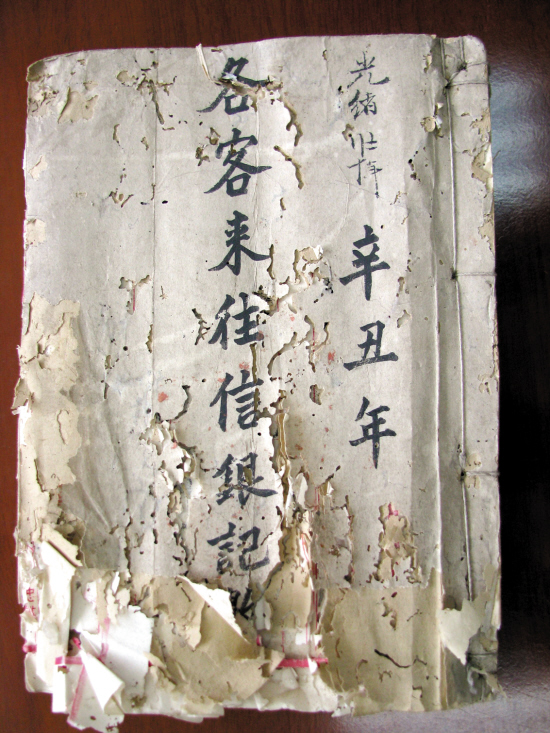 光绪廿七年
辛丑年
各客来往信銀記